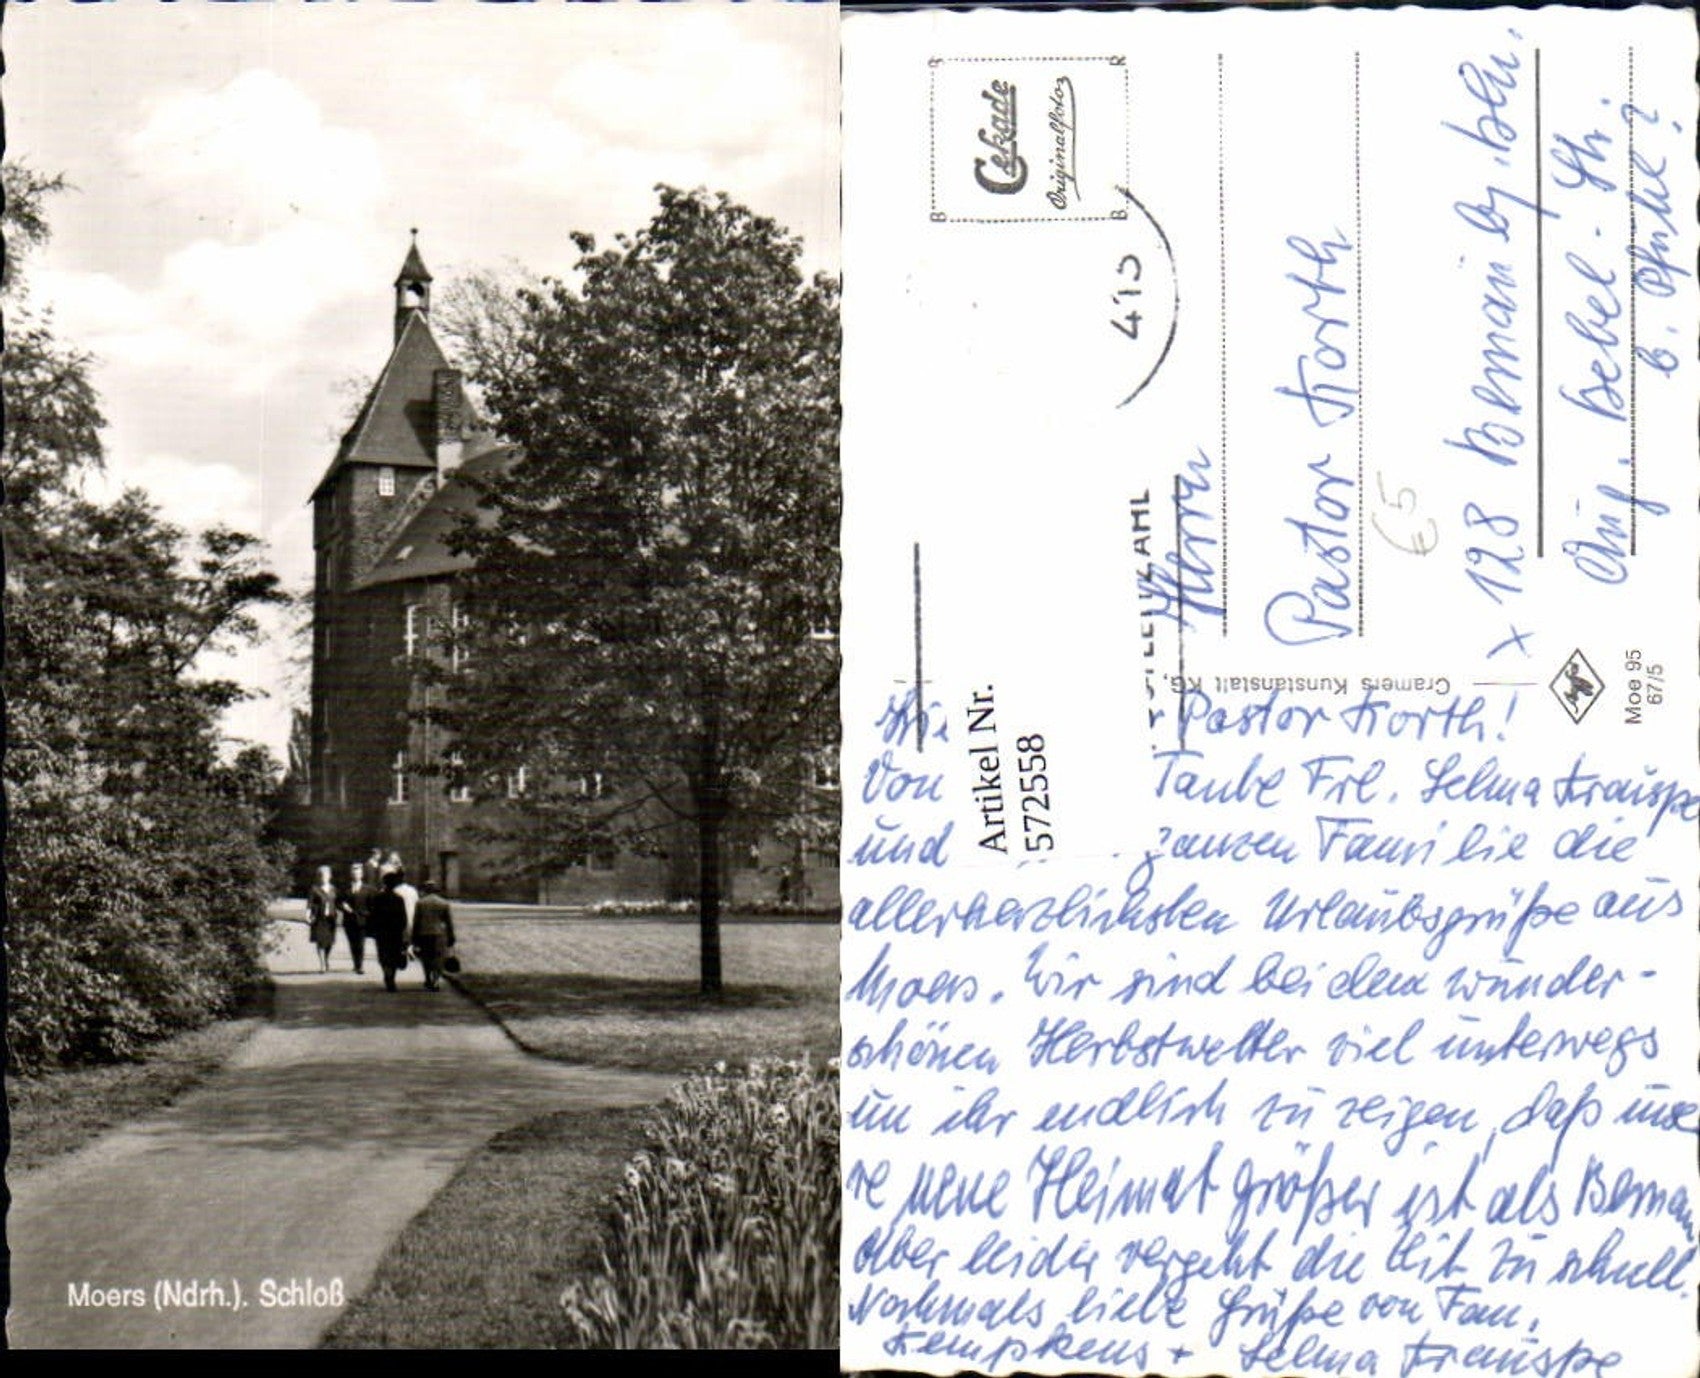 Moers (Ndrh.). Schloß
Cekade
Originalfoto
413
Artikel Nr.
572558
Herrn
Pastor Korth
€5
x 128 Bernau by. Bln.
Aug. Bebel-Str.
b. Pfuhl?
Cramers Kunstanstalt KG,
Agfa
Moe 95
67/5
Pastor Korth!
Von Taube Frl. Selma Krauspe
und ganzen Familie die
allerherzlichsten Urlaubsgrüße aus
Moers. Wir sind bei dem wunder-
schönen Herbstwetter viel unterwegs
um ihr endlich zu zeigen, daß unse
re neue Heimat größer ist als Bernau
Aber leider vergeht die Zeit zu schnell.
Nochmals liebe Grüße von Fam.
Kempkens + Selma Krauspe